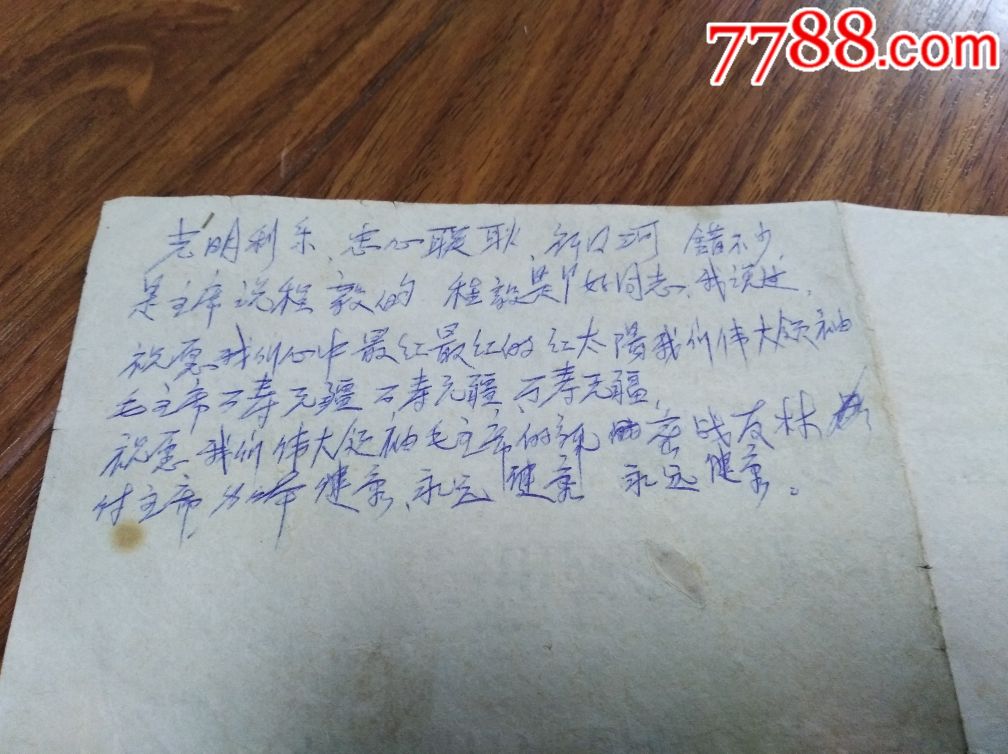 7788.com
志明利乐、忠心联耿、 错不少
是主席说程毅的 程毅是个好同志、我说过、
祝愿我们心中最红最红的红太阳我们伟大领袖
毛主席万寿无疆 万寿无疆、万寿无疆、
祝愿我们伟大领袖毛主席的亲密战友林
付主席 健康、永远健康 永远健康。